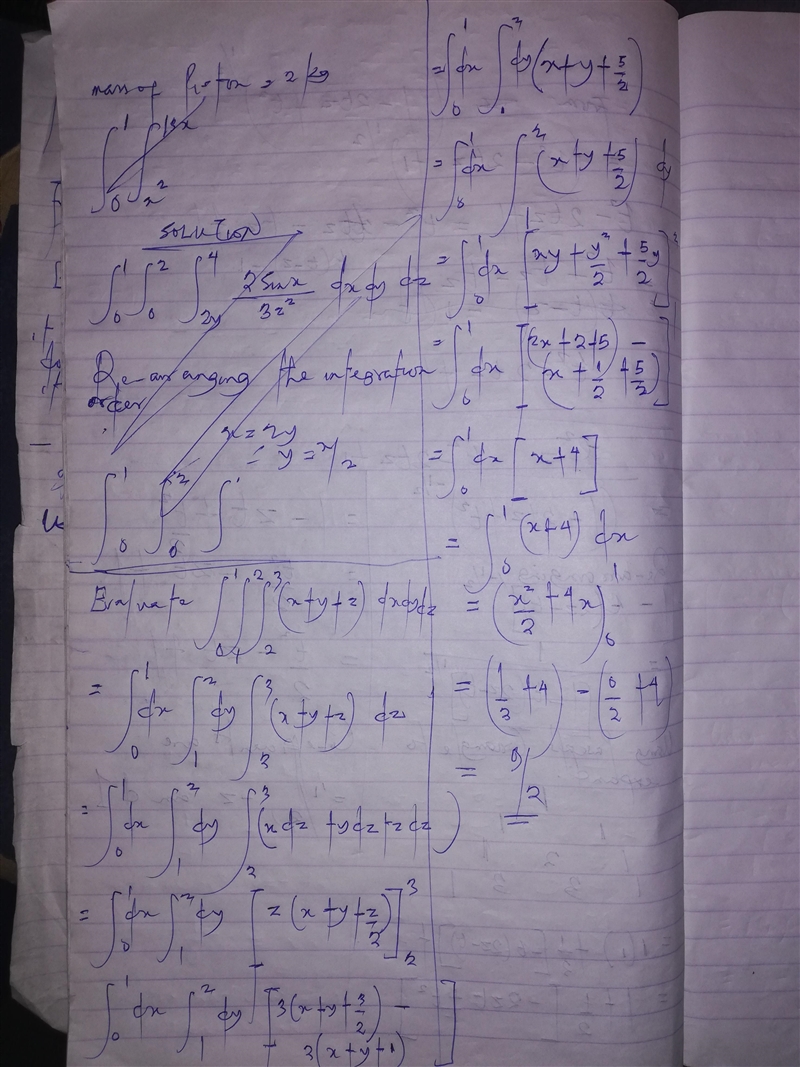 mass of
= 2 kg
∫₀¹ ∫ₓ²
SOLUTION
∫₀¹ ∫₀² ∫₂ᵧ⁴ 2 Sin x / 3z² dx dy dz
Re-arranging the integration
order
x = 2y
∴ y = x/2
∫₀¹ ∫₀² ∫
Evaluate ∫₀¹ ∫₁² ∫₂³ (x+y+z) dxdydz
= ∫₀¹ dx ∫₁² dy ∫₂³ (x+y+z) dz
= ∫₀¹ dx ∫₁² dy ∫₂³ (x dz + y dz + z dz)
= ∫₀¹ dx ∫₁² dy [z(x+y+z/2)]₂³
∫₀¹ dx ∫₁² dy [3(x+y+3/2) −
3(x+y+1)]
= ∫₀¹ dx ∫₁² dy (x+y+5/2)
= ∫₀¹ dx ∫₁² (x+y+5/2) dy
= ∫₀¹ dx [xy + y²/2 + 5/2 y]₁²
= ∫₀¹ dx [(2x+2+5) −
(x + 1/2 + 5/2)]
= ∫₀¹ dx [x+4]
= ∫₀¹ (x+4) dx
= (x²/2 + 4x)₀¹
= (1/2 + 4) − (0/2 + 4)
= 9/2